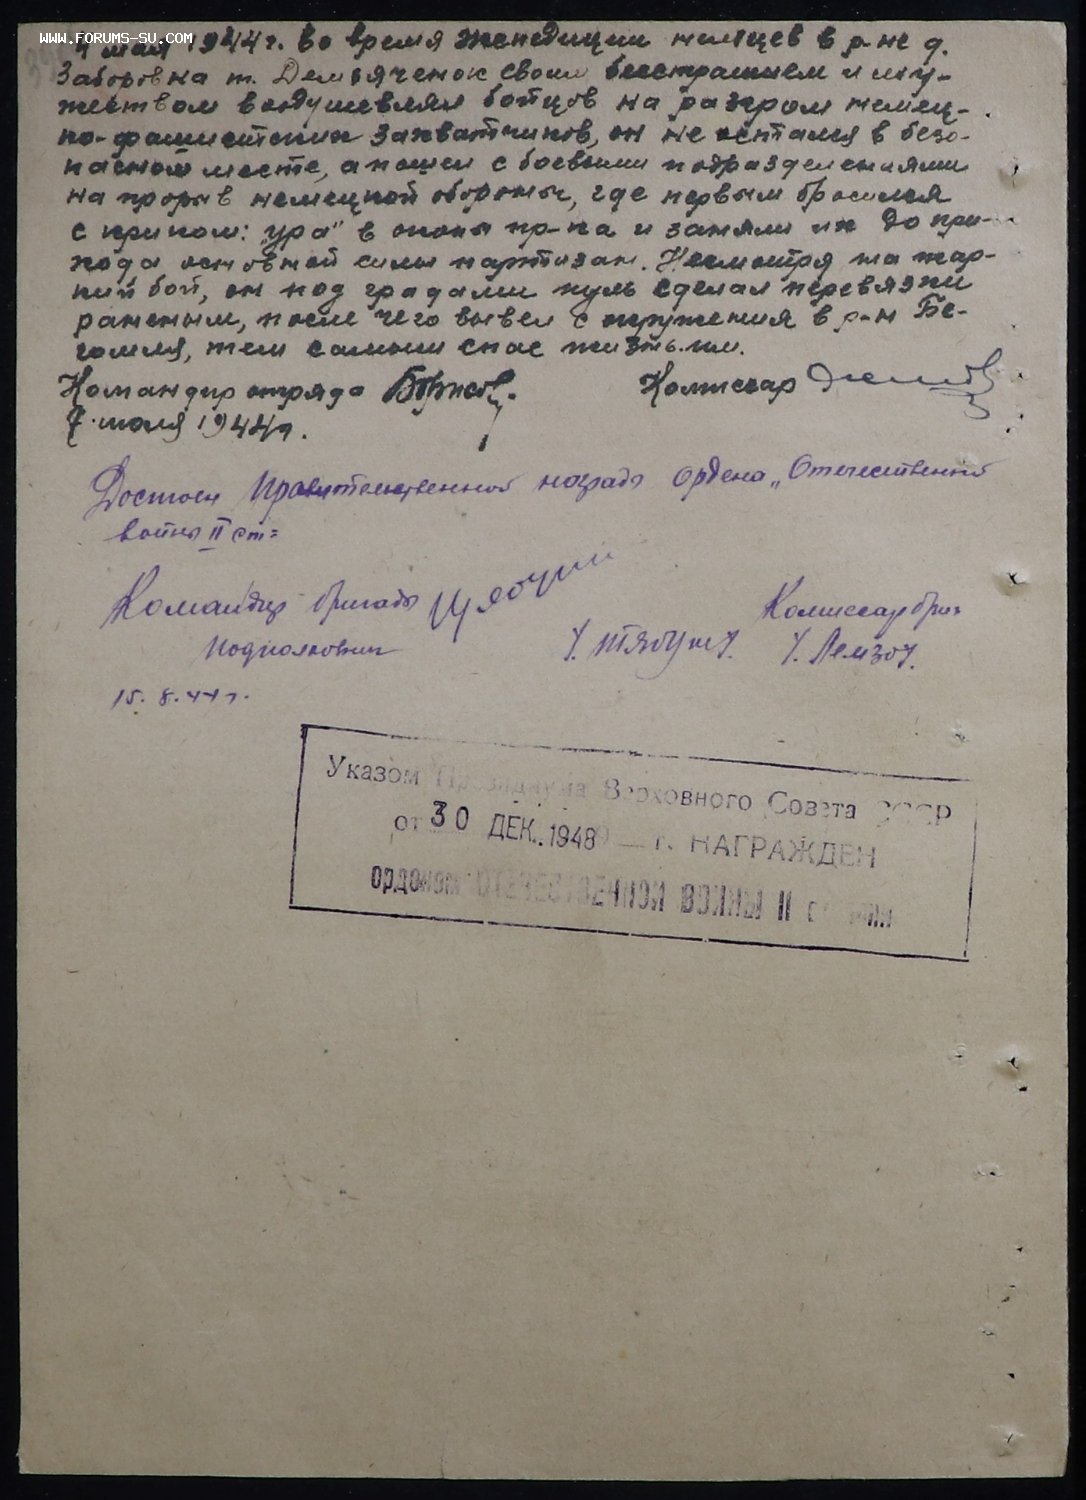 WWW.FORUMS-SU.COM
4 мая 1944 г. во время экспедиции немцев в р-не д.
Заборовка т. Демьяченок своим бесстрашием и му-
жеством воодушевлял бойцов на разгром немец-
ко-фашистских захватчиков, он не остался в безо-
пасном месте, а пошел с боевыми подразделениями
на прорыв немецкой обороны, где первым бросился
с криком: "ура" в окопы пр-ка и заняли их до при-
хода основной силы партизан. Несмотря на жар-
кий бой, он под градами пуль сделал перевязки
раненым, после чего вывел с окружения в р-н Бе-
гомля, тем самым спас жизнь им.
Командир отряда Комиссар
7 июля 1944 г.
Достоин Правительственной награды ордена "Отечественной
войны II ст=
Командир бригады Комиссар бриг
подполковник
15.8.44 г.
Указом Президиума Верховного Совета СССР
от 30 ДЕК. 1948 г. НАГРАЖДЕН
орденом ОТЕЧЕСТВЕННОЙ ВОЙНЫ II степени